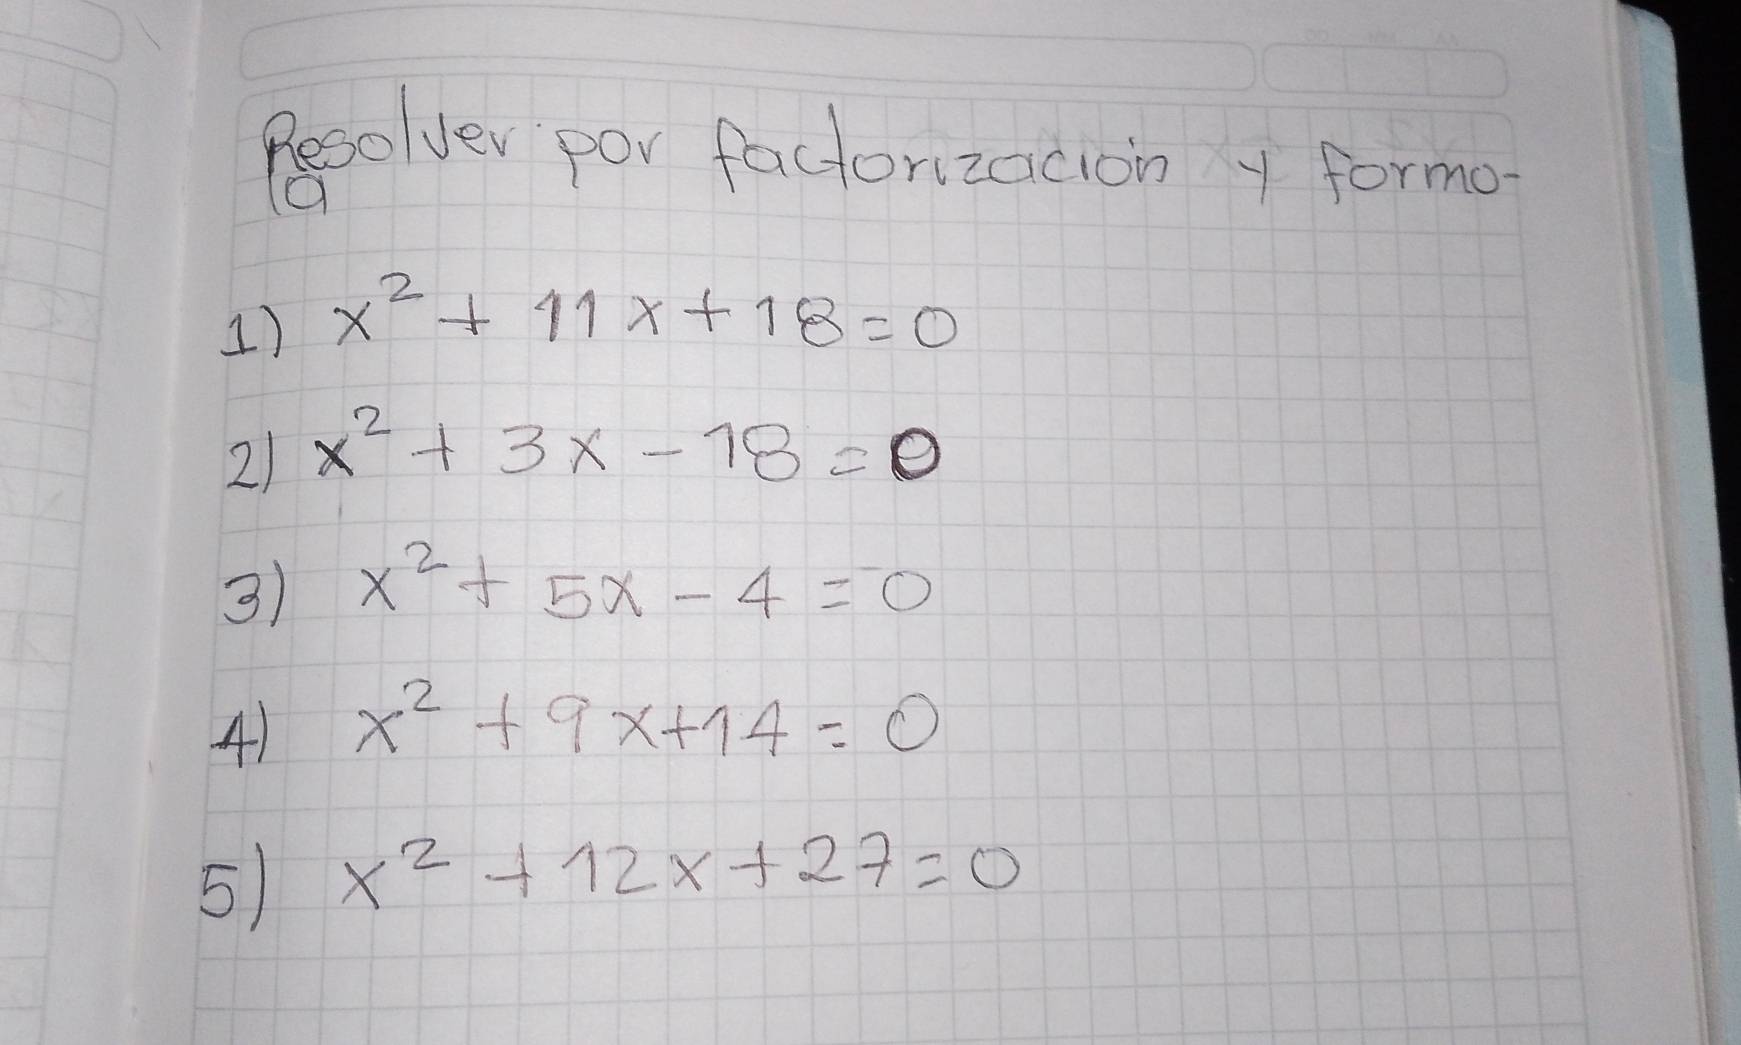 Resolver por factorización y formo-
la
1) x² + 11x + 18 = 0
2) x² + 3x - 18 = 0
3) x² + 5x - 4 = 0
4) x² + 9x + 14 = 0
5) x² + 12x + 27 = 0